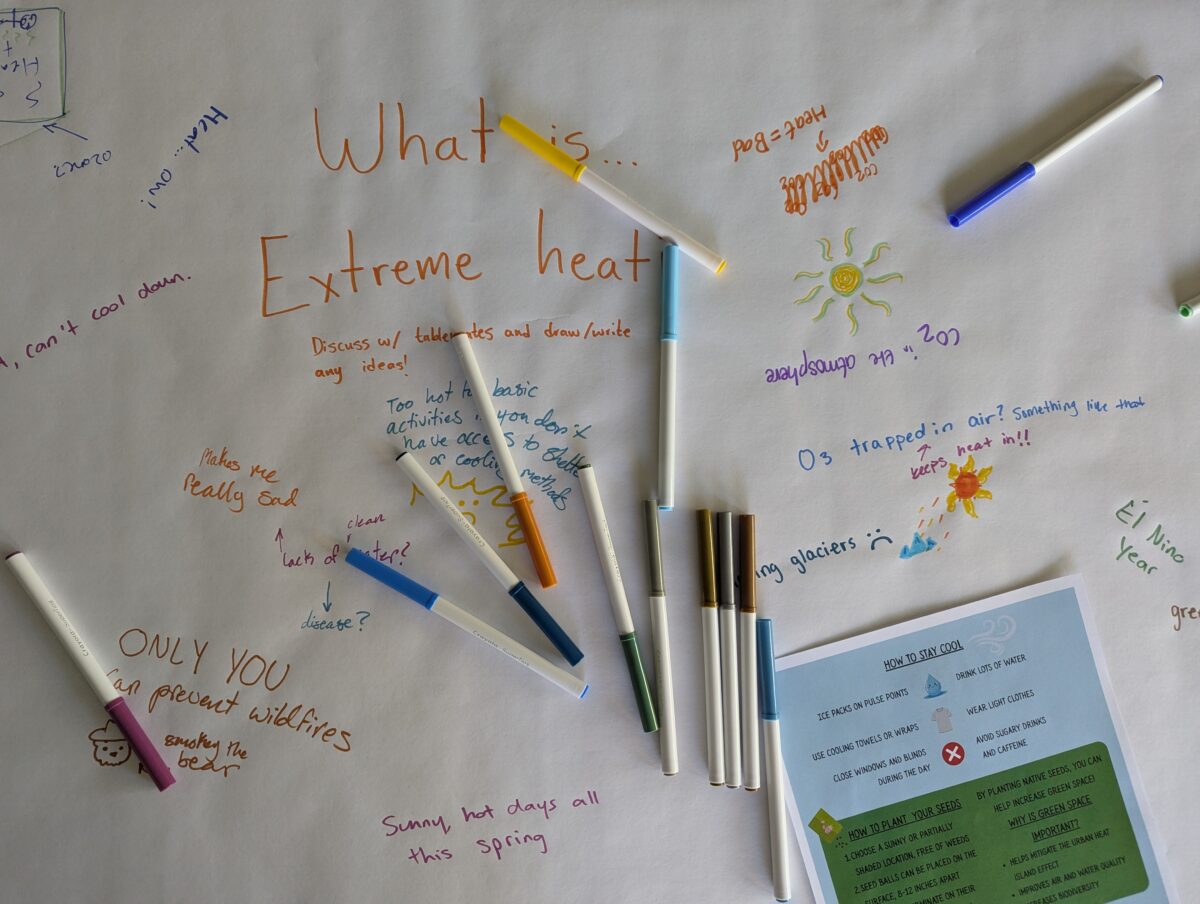 ozone?
Heat... ow!
What is...
Extreme heat
Discuss w/ tablemates and draw/write
any ideas!
Heat = Bad
CO2
CO2 in the atmosphere
can't cool down.
Too hot basic
activities you don't
have access to
or cooling methods
O3 trapped in air? Something like that
keeps heat in!!
glaciers
El Nino
Year
Makes me
really sad
clean
lack of water?
disease?
ONLY YOU
Can prevent wildfires
smokey the
bear
Sunny, hot days all
this spring
HOW TO STAY COOL
ICE PACKS ON PULSE POINTS
DRINK LOTS OF WATER
USE COOLING TOWELS OR WRAPS
WEAR LIGHT CLOTHES
CLOSE WINDOWS AND BLINDS
DURING THE DAY
AVOID SUGARY DRINKS
AND CAFFEINE
HOW TO PLANT YOUR SEEDS
1.CHOOSE A SUNNY OR PARTIALLY
SHADED LOCATION, FREE OF WEEDS
2.SEED BALLS CAN BE PLACED ON THE
SURFACE, 8-12 INCHES APART
ON THEIR
BY PLANTING NATIVE SEEDS, YOU CAN
HELP INCREASE GREEN SPACE!
WHY IS GREEN SPACE
IMPORTANT?
• HELPS MITIGATE THE URBAN HEAT
ISLAND EFFECT
• IMPROVES AIR AND WATER QUALITY
BIODIVERSITY